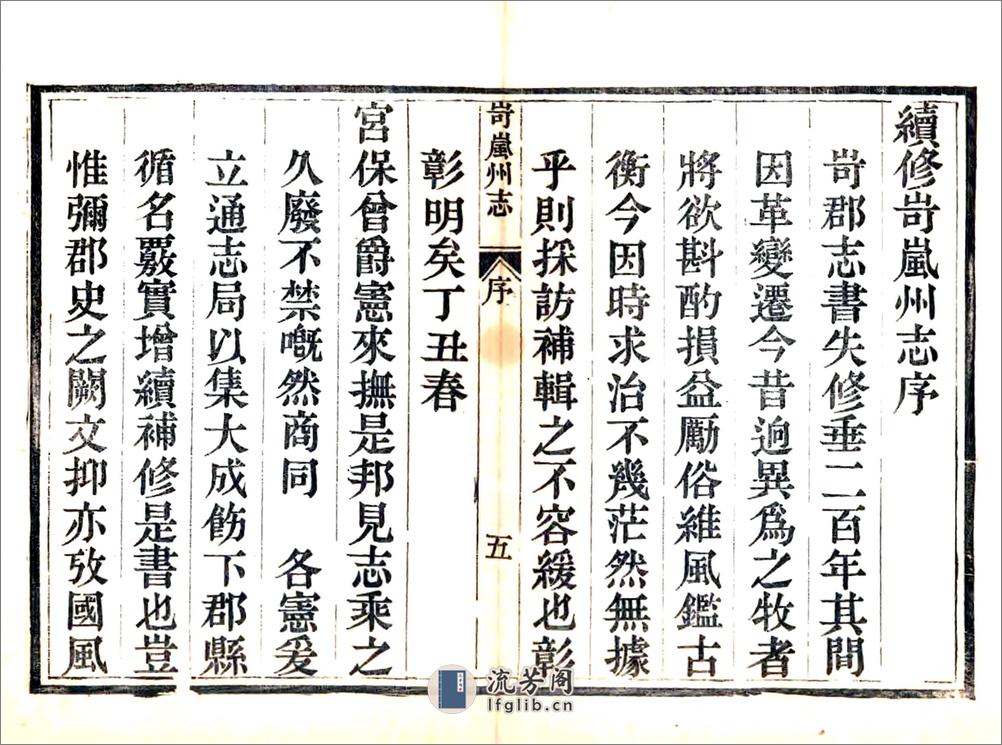 續修岢嵐州志序
岢郡志書失修垂二百年其間
因革變遷今昔逈異爲之牧者
將欲斟酌損益勵俗維風鑑古
衡今因時求治不幾茫然無據
乎則採訪補輯之不容緩也彰
岢嵐州志 序 五
彰明矣丁丑春
宮保曾爵憲來撫是邦見志乘之
久廢不禁嘅然商同 各憲爰
立通志局以集大成飭下郡縣
循名覈實增續補修是書也豈
惟彌郡史之闕文抑亦攷國風
流芳阁
lfglib.cn